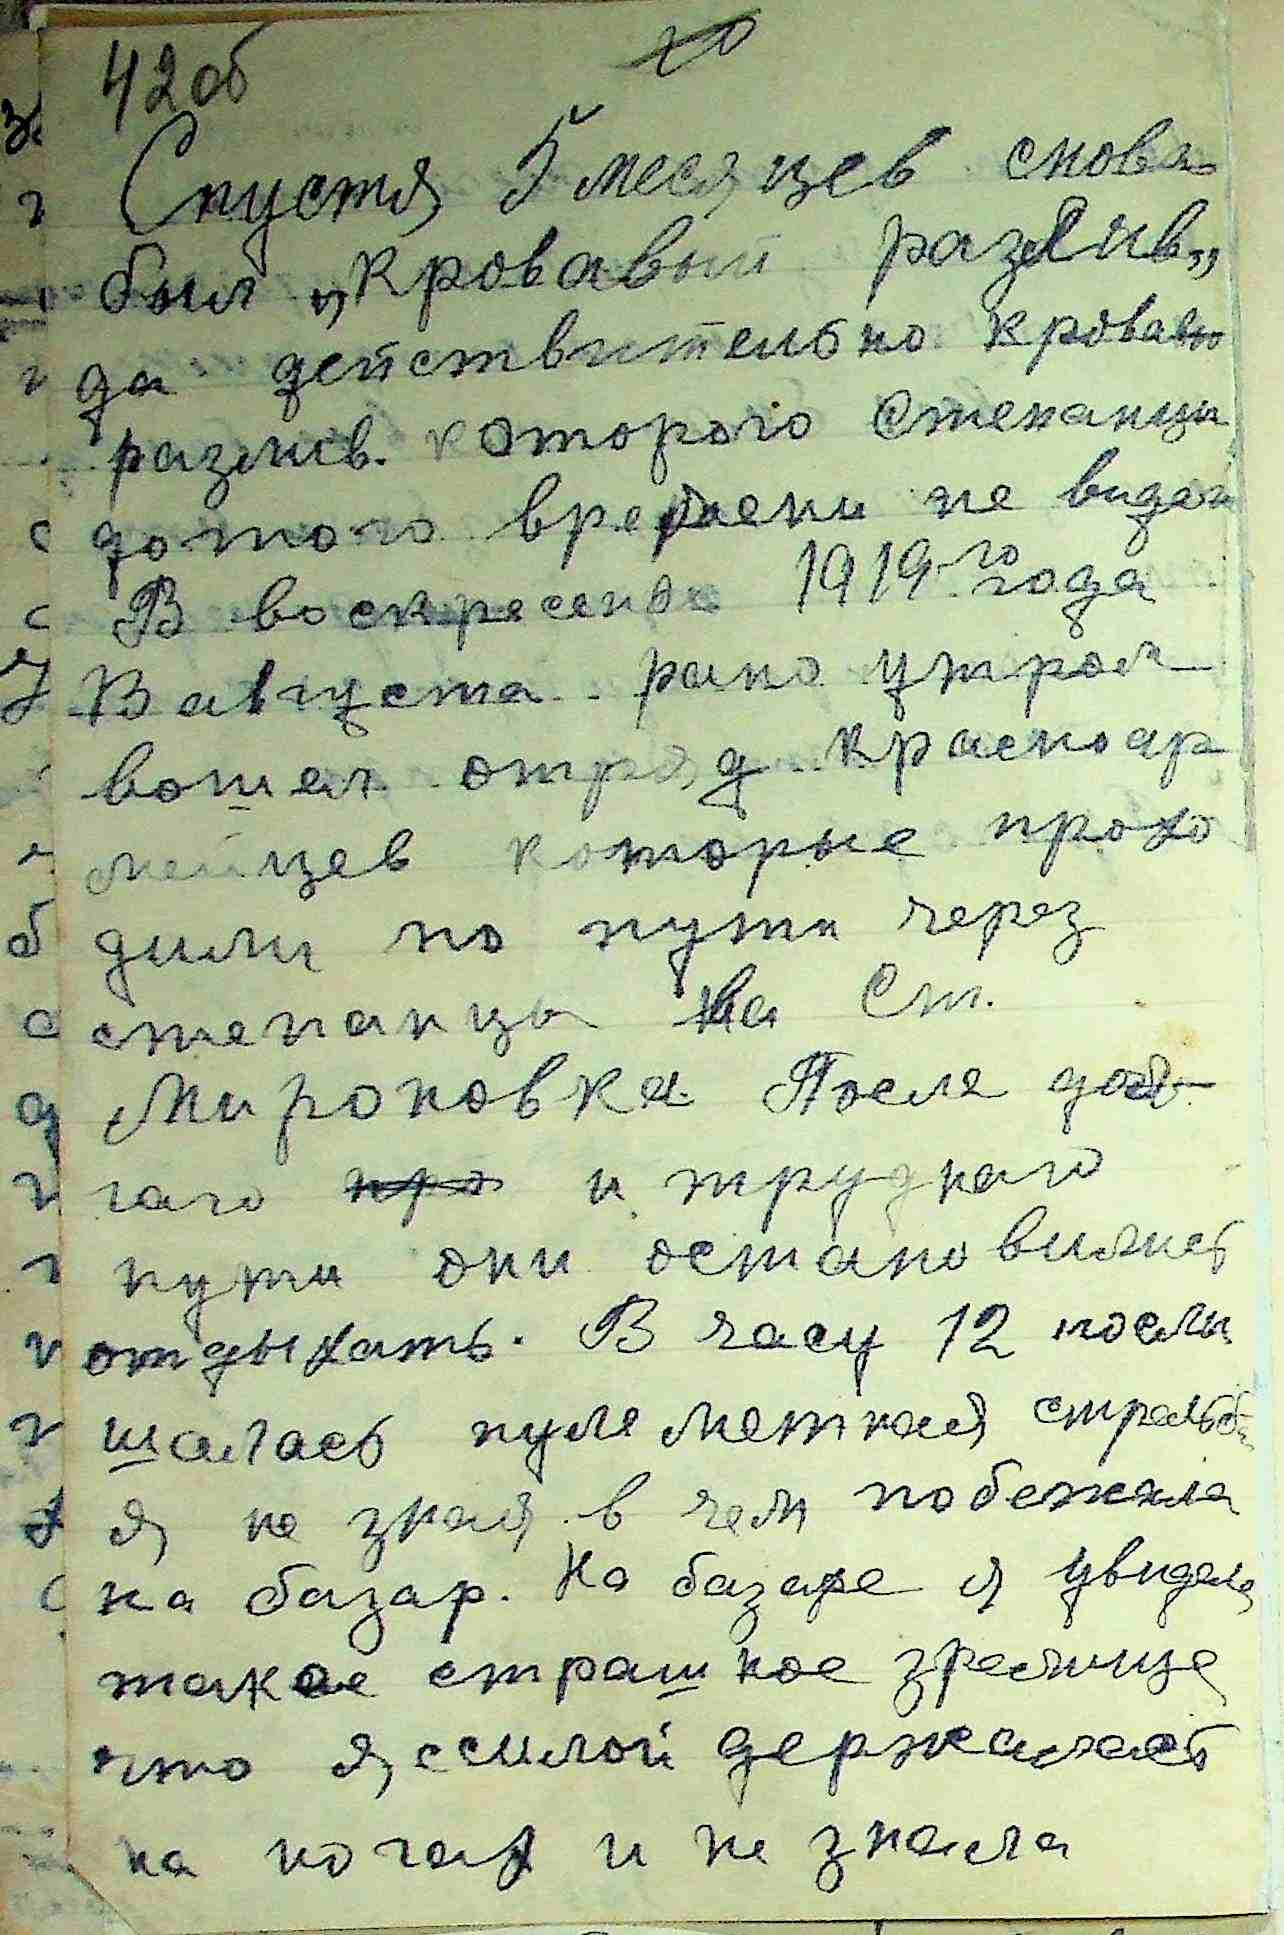 42об
Спустя 5 месяцев снова
был „Кровавый разлив„
да действительно кроваво
разлив. которого Степанцы
дотого времени не видел
В воскресенье 1919-го года
В августа рано утром
вошел отряд красноар
мейцев которые прохо
дили по пути через
степанцы на Ст.
Мироновка После дол-
гаго про и труднаго
пути они остановились
отдыхать. В часу 12 послы
шалась пулеметная стрельба
я не зная в чем побежала
на базар. На базаре я увидела
такое страшное зрелище
что я ссилой держалась
на ногах и не знала